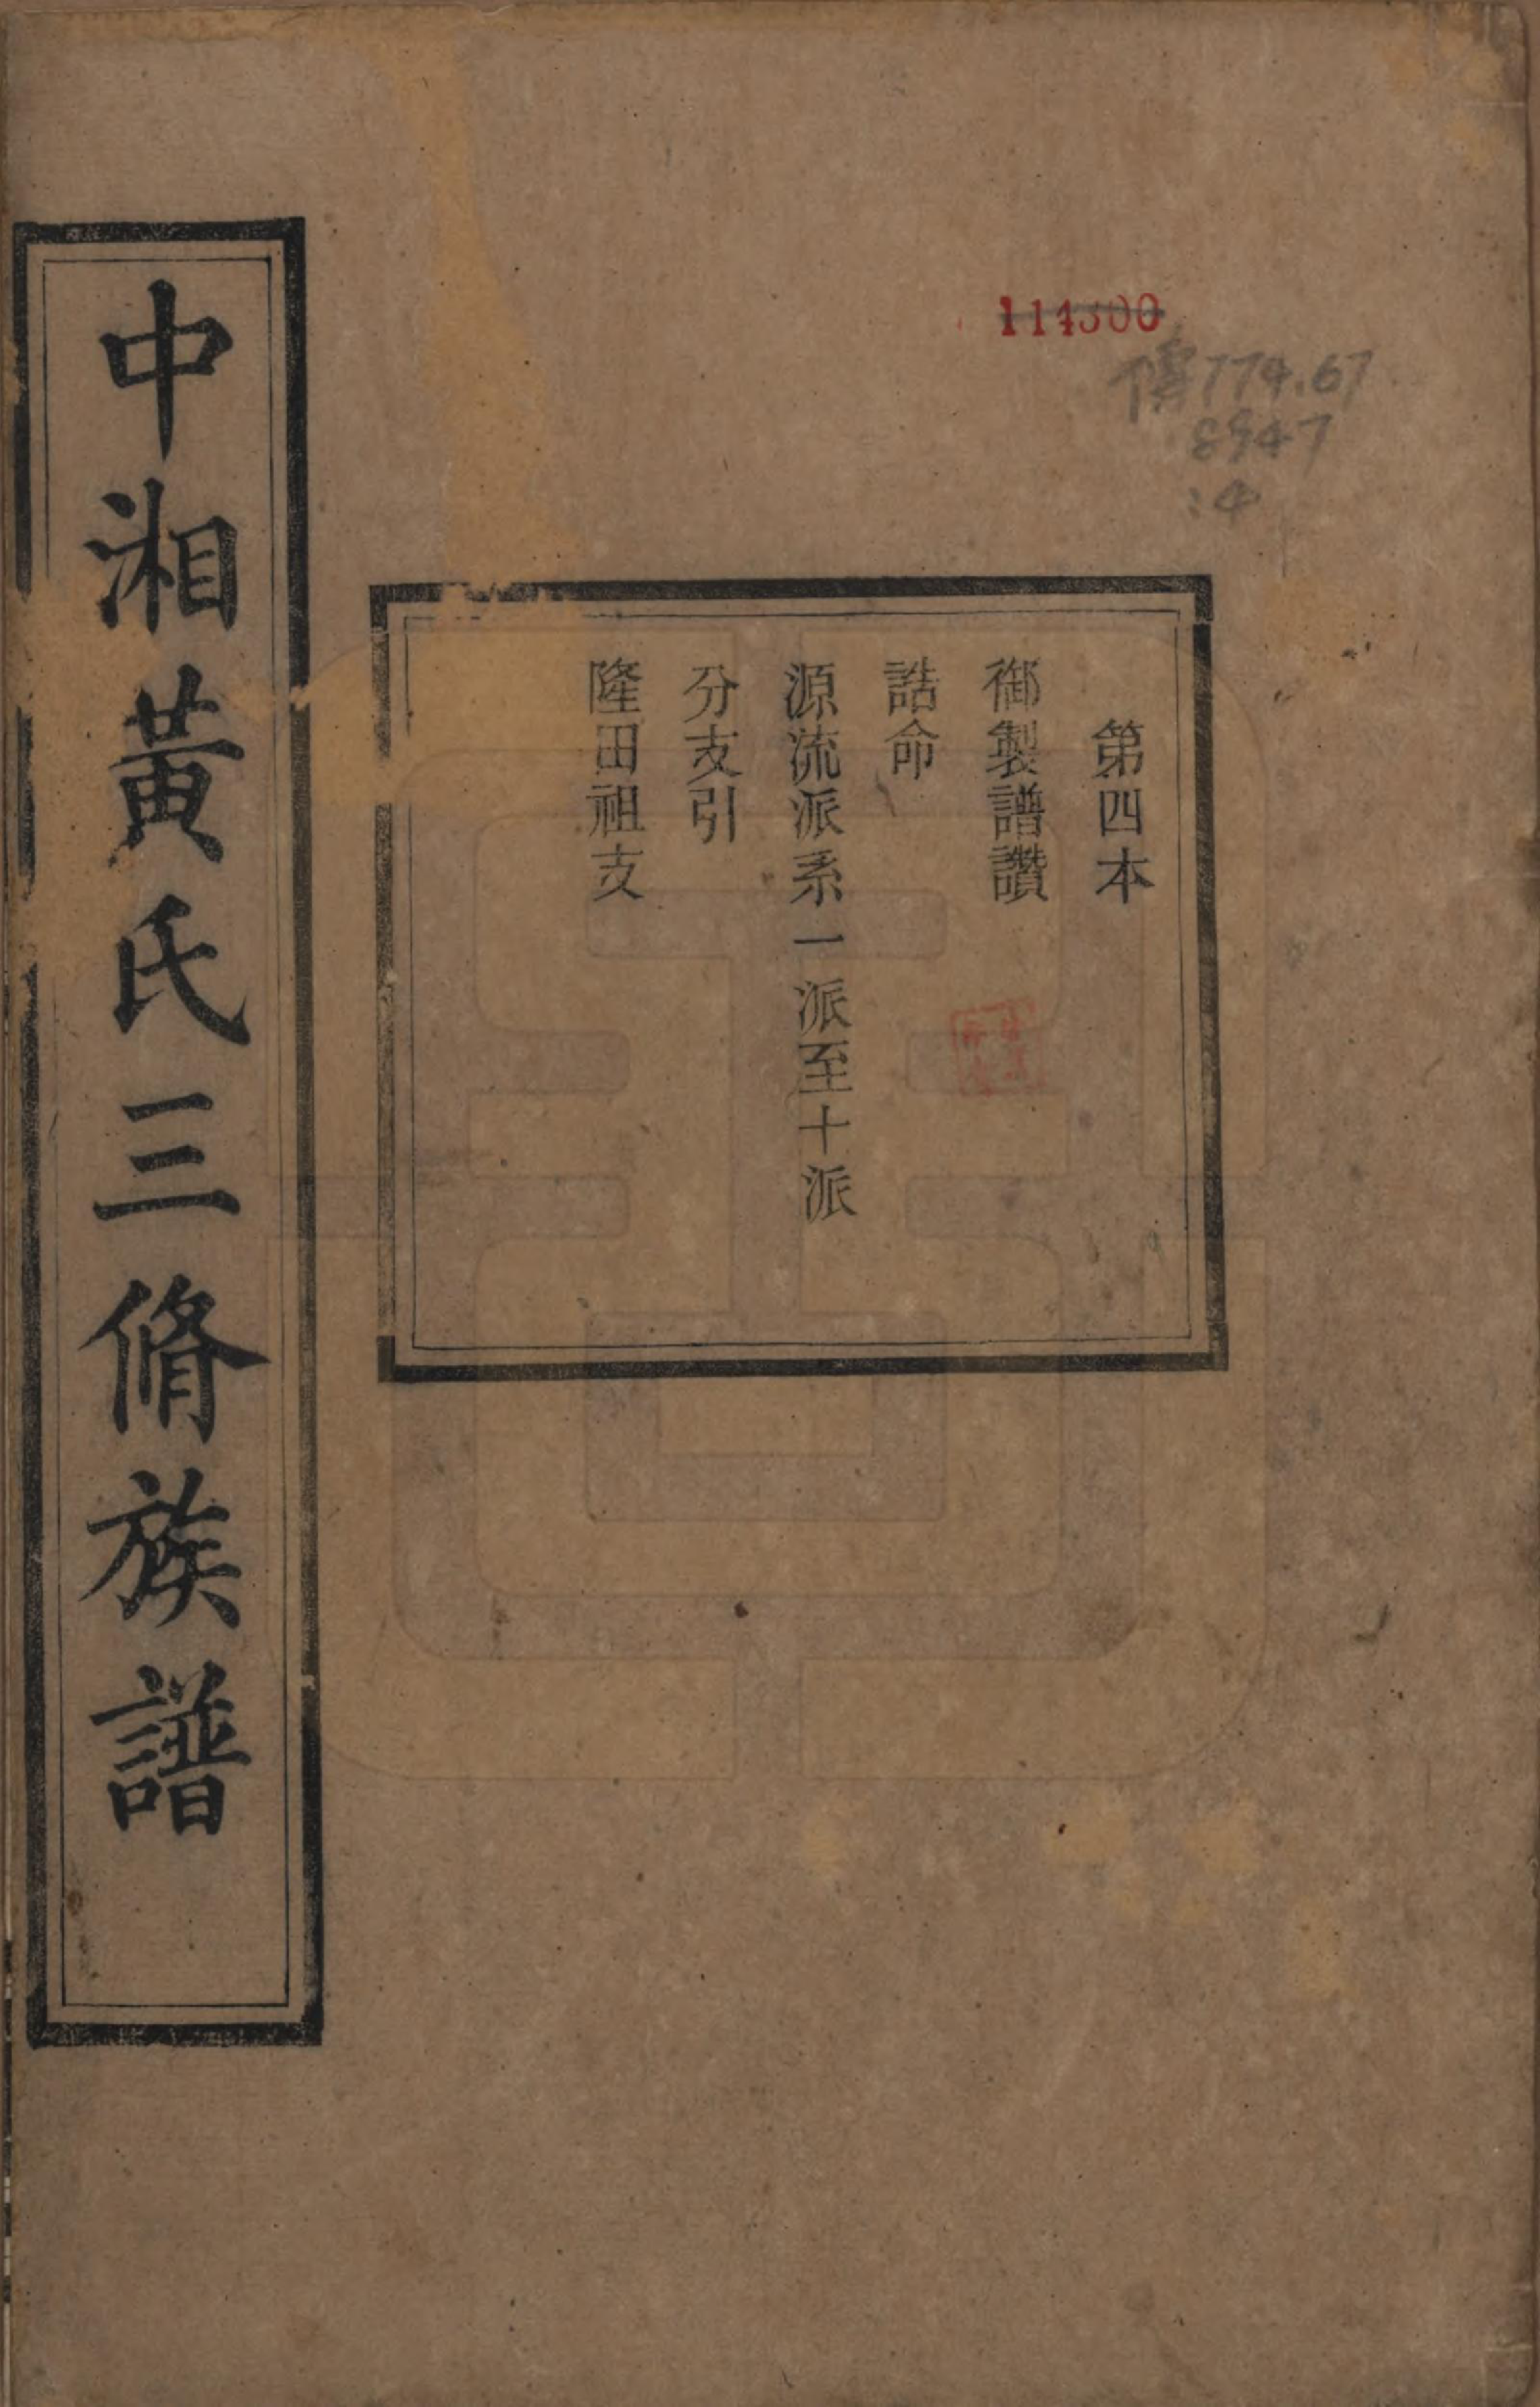 第四本
御製譜讚
誥命
源流派系一派至十派
分支引
隆田祖支
中湘黃氏三脩族譜
114300
傳774.67
8947
:4